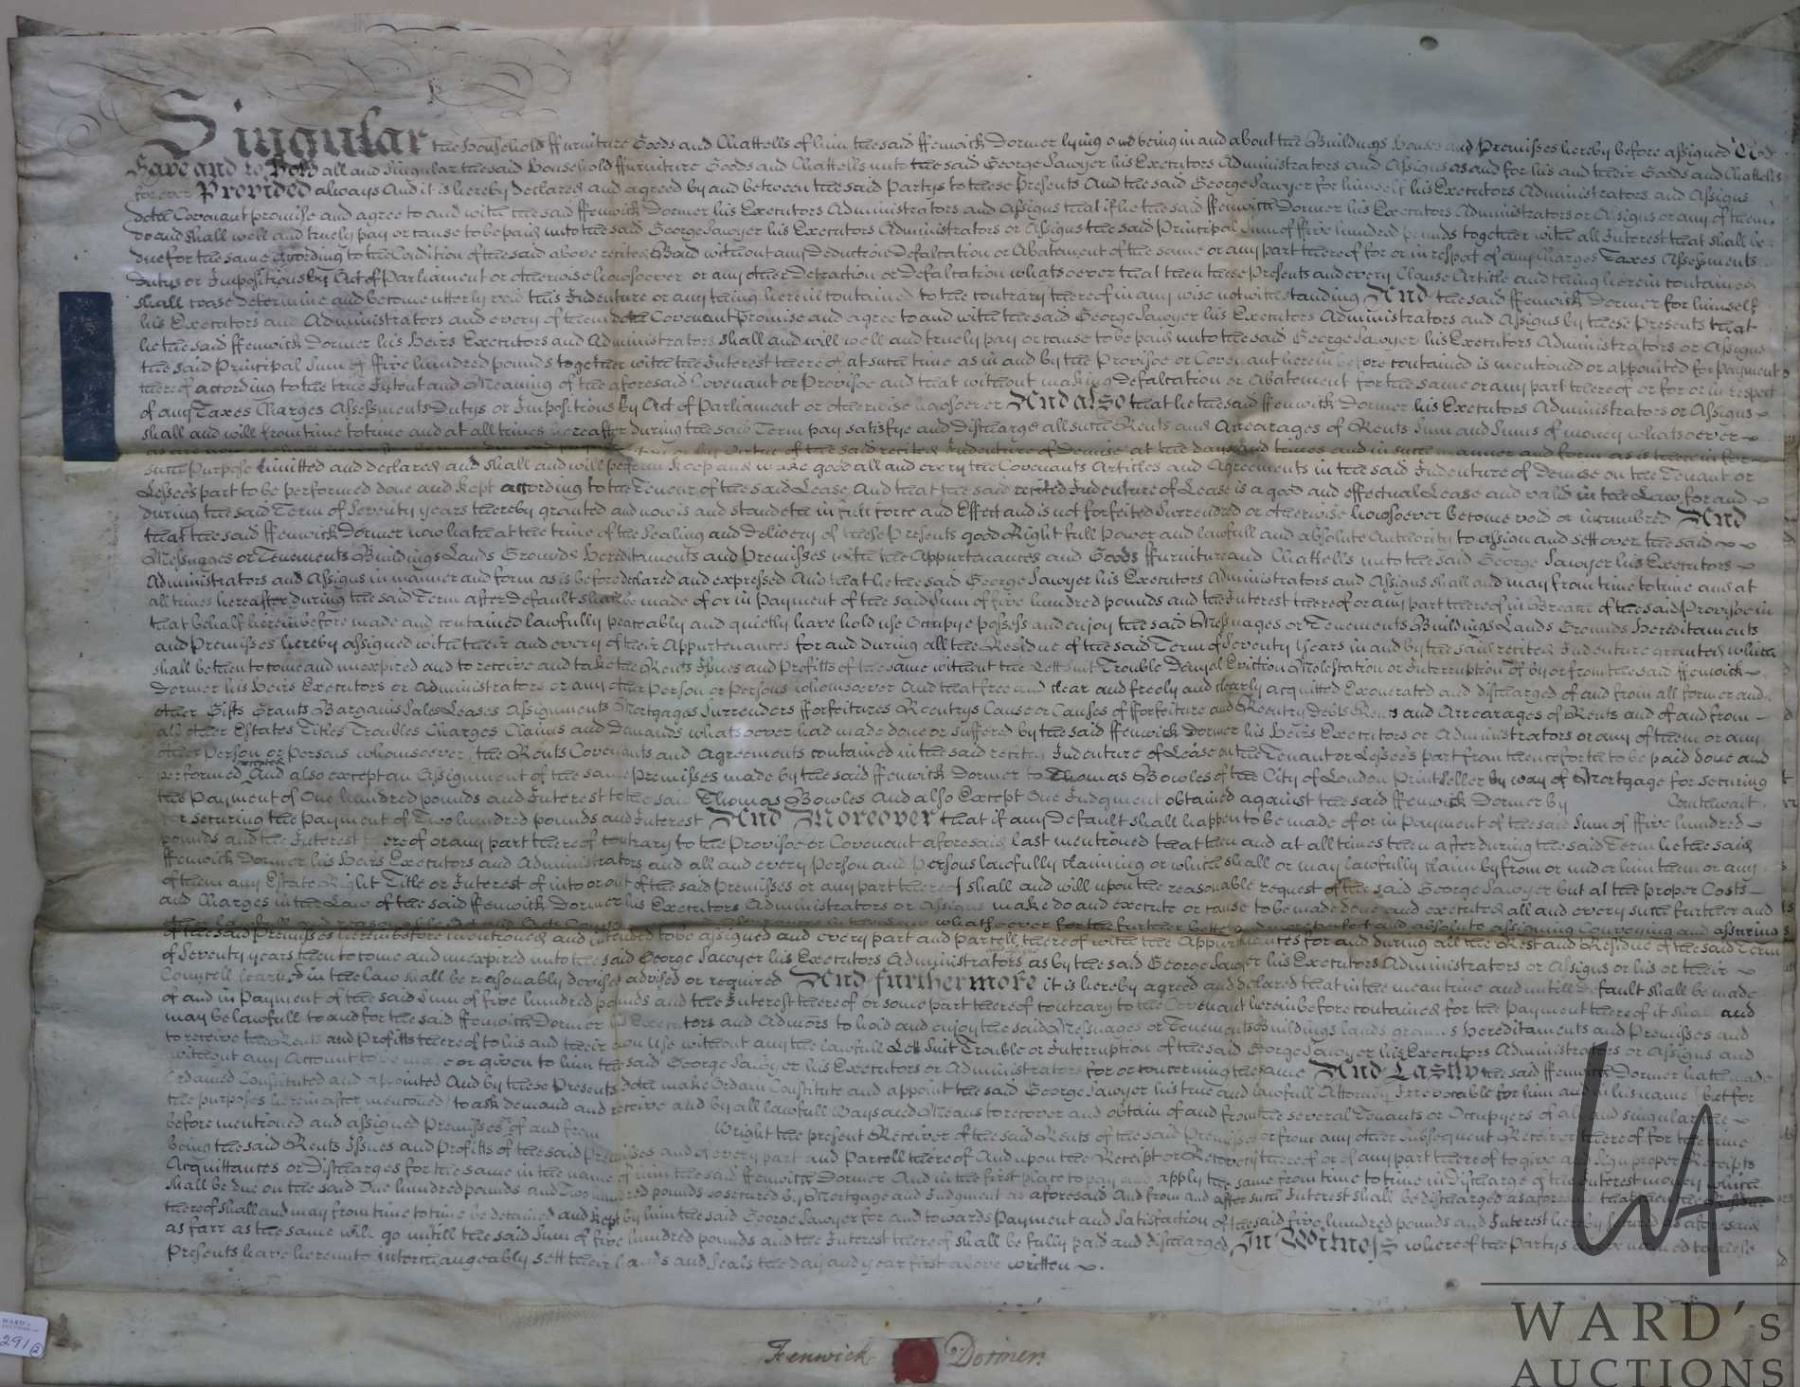 Singular the Household ffurniture Goods and Chattells of him the said ffenwick Dormer lying and being in and about the Buildings Houses and Premisses hereby before assigned To
Have and to Hold all and singular the said Household ffurniture Goods and Chattells unto the said George Sawyer his Executors Administrators and Assigns as and for his and their Goods and Chattells
for ever Provided always And it is hereby declared and agreed by and between the said Partys to these Presents And the said George Sawyer for himself his Executors Administrators and Assigns
doth Covenant promise and agree to and with the said ffenwick Dormer his Executors Administrators and Assigns that if he the said ffenwick Dormer his Executors Administrators or Assigns or any of them
do and shall well and truely pay or cause to be paid unto the said George Sawyer his Executors Administrators or Assigns the said Principal Sum of ffive hundred pounds together with all Interest that shall be
due for the same according to the Condition of the said above recited Bond without any Deduction Defalcation or Abatement of the same or any part thereof for or in respect of any Charges Taxes Assessments
Dutys or Impositions by Act of Parliament or otherwise howsoever or any other Detraction or Defalcation whatsoever that then these Presents and every Clause Article and thing herein contained
shall cease determine and become utterly void this Indenture or any thing herein contained to the contrary thereof in any wise notwithstanding And the said ffenwick Dormer for himself
his Executors and Administrators and every of them doth Covenant Promise and agree to and with the said George Sawyer his Executors Administrators and Assigns by these Presents that
he the said ffenwick Dormer his Heirs Executors and Administrators shall and will well and truely pay or cause to be paid unto the said George Sawyer his Executors Administrators or Assigns
the said Principal Sum of ffive hundred pounds together with the Interest thereof at such time as in and by the Provisoe or Covenant herein before contained is mentioned or appointed for payment
thereof according to the true Intent and Meaning of the aforesaid Covenant or Provisoe and that without making Defalcation or Abatement for the same or any part thereof or for or in respect
of any Taxes Charges Assessments Dutys or Impositions By Act of Parliament or otherwise howsoever And also that he the said ffenwick Dormer his Executors Administrators or Assigns
shall and will from time to time and at all times hereafter during the said Term pay satisfye and discharge all such Rents and Arrearages of Rents Sum and Sums of money whatsoever
by Virtue of the said recited Indenture of Demise at the days and times and in such manner and form as is therein for
such Purpose limitted and declared and shall and will perform keep and make good all and every the Covenants Articles and Agreements in the said Indenture of Demise on the Tenant or
Lessee's part to be performed done and kept according to the Tenour of the said Lease And that the said recited Indenture of Lease is a good and effectual Lease and valid in the Law for and
during the said Term of Seventy years thereby granted and now is and standeth in full force and Effect and is not forfeited Surrendred or otherwise howsoever become void or incumbred And
that the said ffenwick Dormer now hath at the time of the Sealing and delivery of these Presents good Right full Power and lawfull and absolute Authority to assign and sett over the said
Messuages or Tenements Buildings Lands Grounds Hereditaments and Premisses with the Appurtenances and Goods ffurniture and Chattells unto the said George Sawyer his Executors
Administrators and Assigns in manner and form as is before declared and expressed And that he the said George Sawyer his Executors Administrators and Assigns shall and may from time to time and at
all times hereafter during the said Term after Default shall be made of or in Payment of the said Sum of ffive hundred pounds and the Interest thereof or any part thereof in Breach of the said Provisoe in
that behalf herein before made and contained lawfully peaceably and quietly have hold use Occupye possess and enjoy the said Messuages or Tenements Buildings Lands Grounds Hereditaments
and Premisses hereby assigned with their and every of their Appurtenances for and during all the Residue of the said Term of Seventy years in and by the said recited Indenture granted which
shall be then to come and unexpired and to receive and take the Rents Issues and Profitts of the same without the Lett Suit Trouble Denyal Eviction Molestation or Interruption of by or from the said ffenwick
Dormer his Heirs Executors or Administrators or any other Person or Persons whomsoever And that free and clear and freely and clearly acquitted Exonerated and discharged of and from all former and
other Gifts Grants Bargains Sales Leases Assignments Mortgages Surrenders fforfeitures Reentrys Cause or Causes of fforfeiture and Reentry Debts Rents and Arrearages of Rents and of and from
all other Estates Titles Troubles Charges Claims and Demands whatsoever had made done or suffered by the said ffenwick Dormer his Heirs Executors or Administrators or any of them or any
other Person or Persons whomsoever the Rents Covenants and Agreements contained in the said recited Indenture of Lease on the Tenant or Lessee's part from thenceforth to be paid done and
performed And also except an Assignment of the same Premisses made by the said ffenwick Dormer to Thomas Bowles of the City of London Printseller by way of Mortgage for securing
the Payment of One hundred pounds and Interest to the said Thomas Bowles And also Except One Judgment obtained against the said ffenwick Dormer by
for securing the Payment of Two hundred pounds and Interest And Moreover that if any Default shall happen to be made of or in Payment of the said Sum of ffive hundred
pounds and the Interest thereof or any part thereof contrary to the Provisoe or Covenant aforesaid last mentioned that then and at all times then after during the said Term he the said
ffenwick Dormer his Heirs Executors and Administrators and all and every Person and Persons lawfully claiming or which shall or may lawfully claim by from or under him them or any
of them any Estate Right Title or Interest of into or out of the said Premisses or any part thereof shall and will upon the reasonable request of the said George Sawyer but at the proper Costs
and Charges in the Law of the said ffenwick Dormer his Executors Administrators or Assigns make do and execute or cause to be made done and executed all and every such further and
whatsoever for the further better and more perfect and absolute assigning Conveying and assuring
of the said Premisses herein before mentioned and intended to be assigned and every part and parcell thereof with the Appurtenances for and during all the Rest and Residue of the said Term
of Seventy years then to come and unexpired unto the said George Sawyer his Executors Administrators as by the said George Sawyer his Executors Administrators or Assigns or his or their
Councell learned in the law shall be reasonably devised advised or required And furthermore it is hereby agreed and declared that in the mean time and untill default shall be made
of and in Payment of the said Sum of five hundred pounds and the Interest thereof or some part thereof contrary to the Covenant herein before contained for the Payment thereof it shall and
may be lawfull to and for the said ffenwick Dormer his Executors and Admors to hold and enjoy the said Messuages or Tenements Buildings lands grounds Hereditaments and Premisses and
to receive the Rents and Profitts thereof to his and their own Use without any the lawfull Lett Suit Trouble or Interruption of the said George Sawyer his Executors Administrators or Assigns and
without any Account to be made or given to him the said George Sawyer his Executors or Administrators for or concerning the same And Lastly the said ffenwick Dormer hath made
ordained Constituted and appointed And by these Presents doth make Ordain Constitute and appoint the said George Sawyer his true and lawfull Attorney Irrevocable for him and in his name but for
the purposes herein after mentioned to ask demand and receive and by all lawfull Ways and Means to recover and obtain of and from the several Tenants or Occupyers of all and singular the
before mentioned and assigned Premisses of and from Wright the present Receiver of the said Rents of the said Premisses or from any other Subsequent Receiver thereof for the time
being the said Rents Issues and Profitts of the said Premisses and every part and Parcell thereof And upon the Receipt or Recovery thereof or of any part thereof to give and sign proper Receipts
Acquittances or Discharges for the same in the name of him the said ffenwick Dormer And in the first place to pay and apply the same from time to time in Discharge of the Interest money which
shall be due on the said One hundred pounds and Two hundred pounds so secured by Mortgage and Judgment as aforesaid And from and after such Interest shall be discharged as aforesaid that then the Residue
thereof shall and may from time to time be detained and kept by him the said George Sawyer for and towards Payment and Satisfaction of the said five hundred pounds and Interest hereby secured as aforesaid
as farr as the same will go untill the said Sum of five hundred pounds and the Interest thereof shall be fully paid and discharged In Witness whereof the Partys above named to these
Presents have hereunto interchangeably sett their hands and Seals the day and year first above written
Fenwick Dormer
WARD's
291
WARD's
AUCTIONS